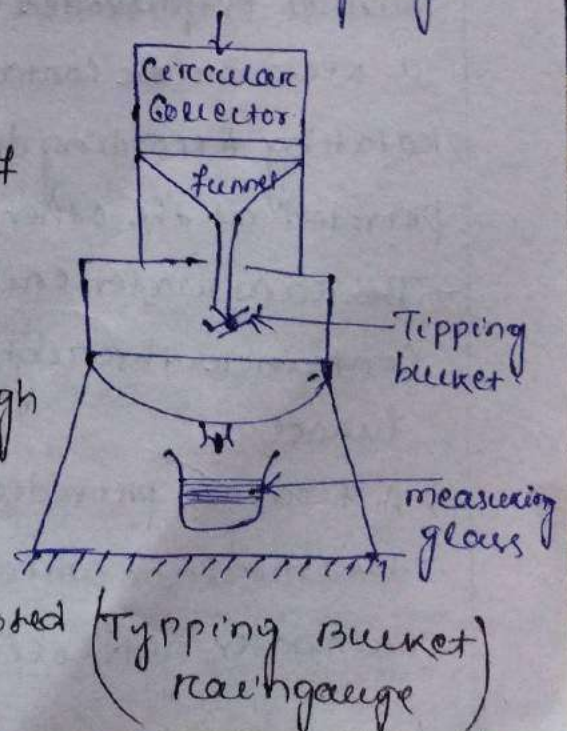 Circular
Collector
funnel
Tipping
bucket
gh
measuring
glass
(Typping Bucket
raingauge)